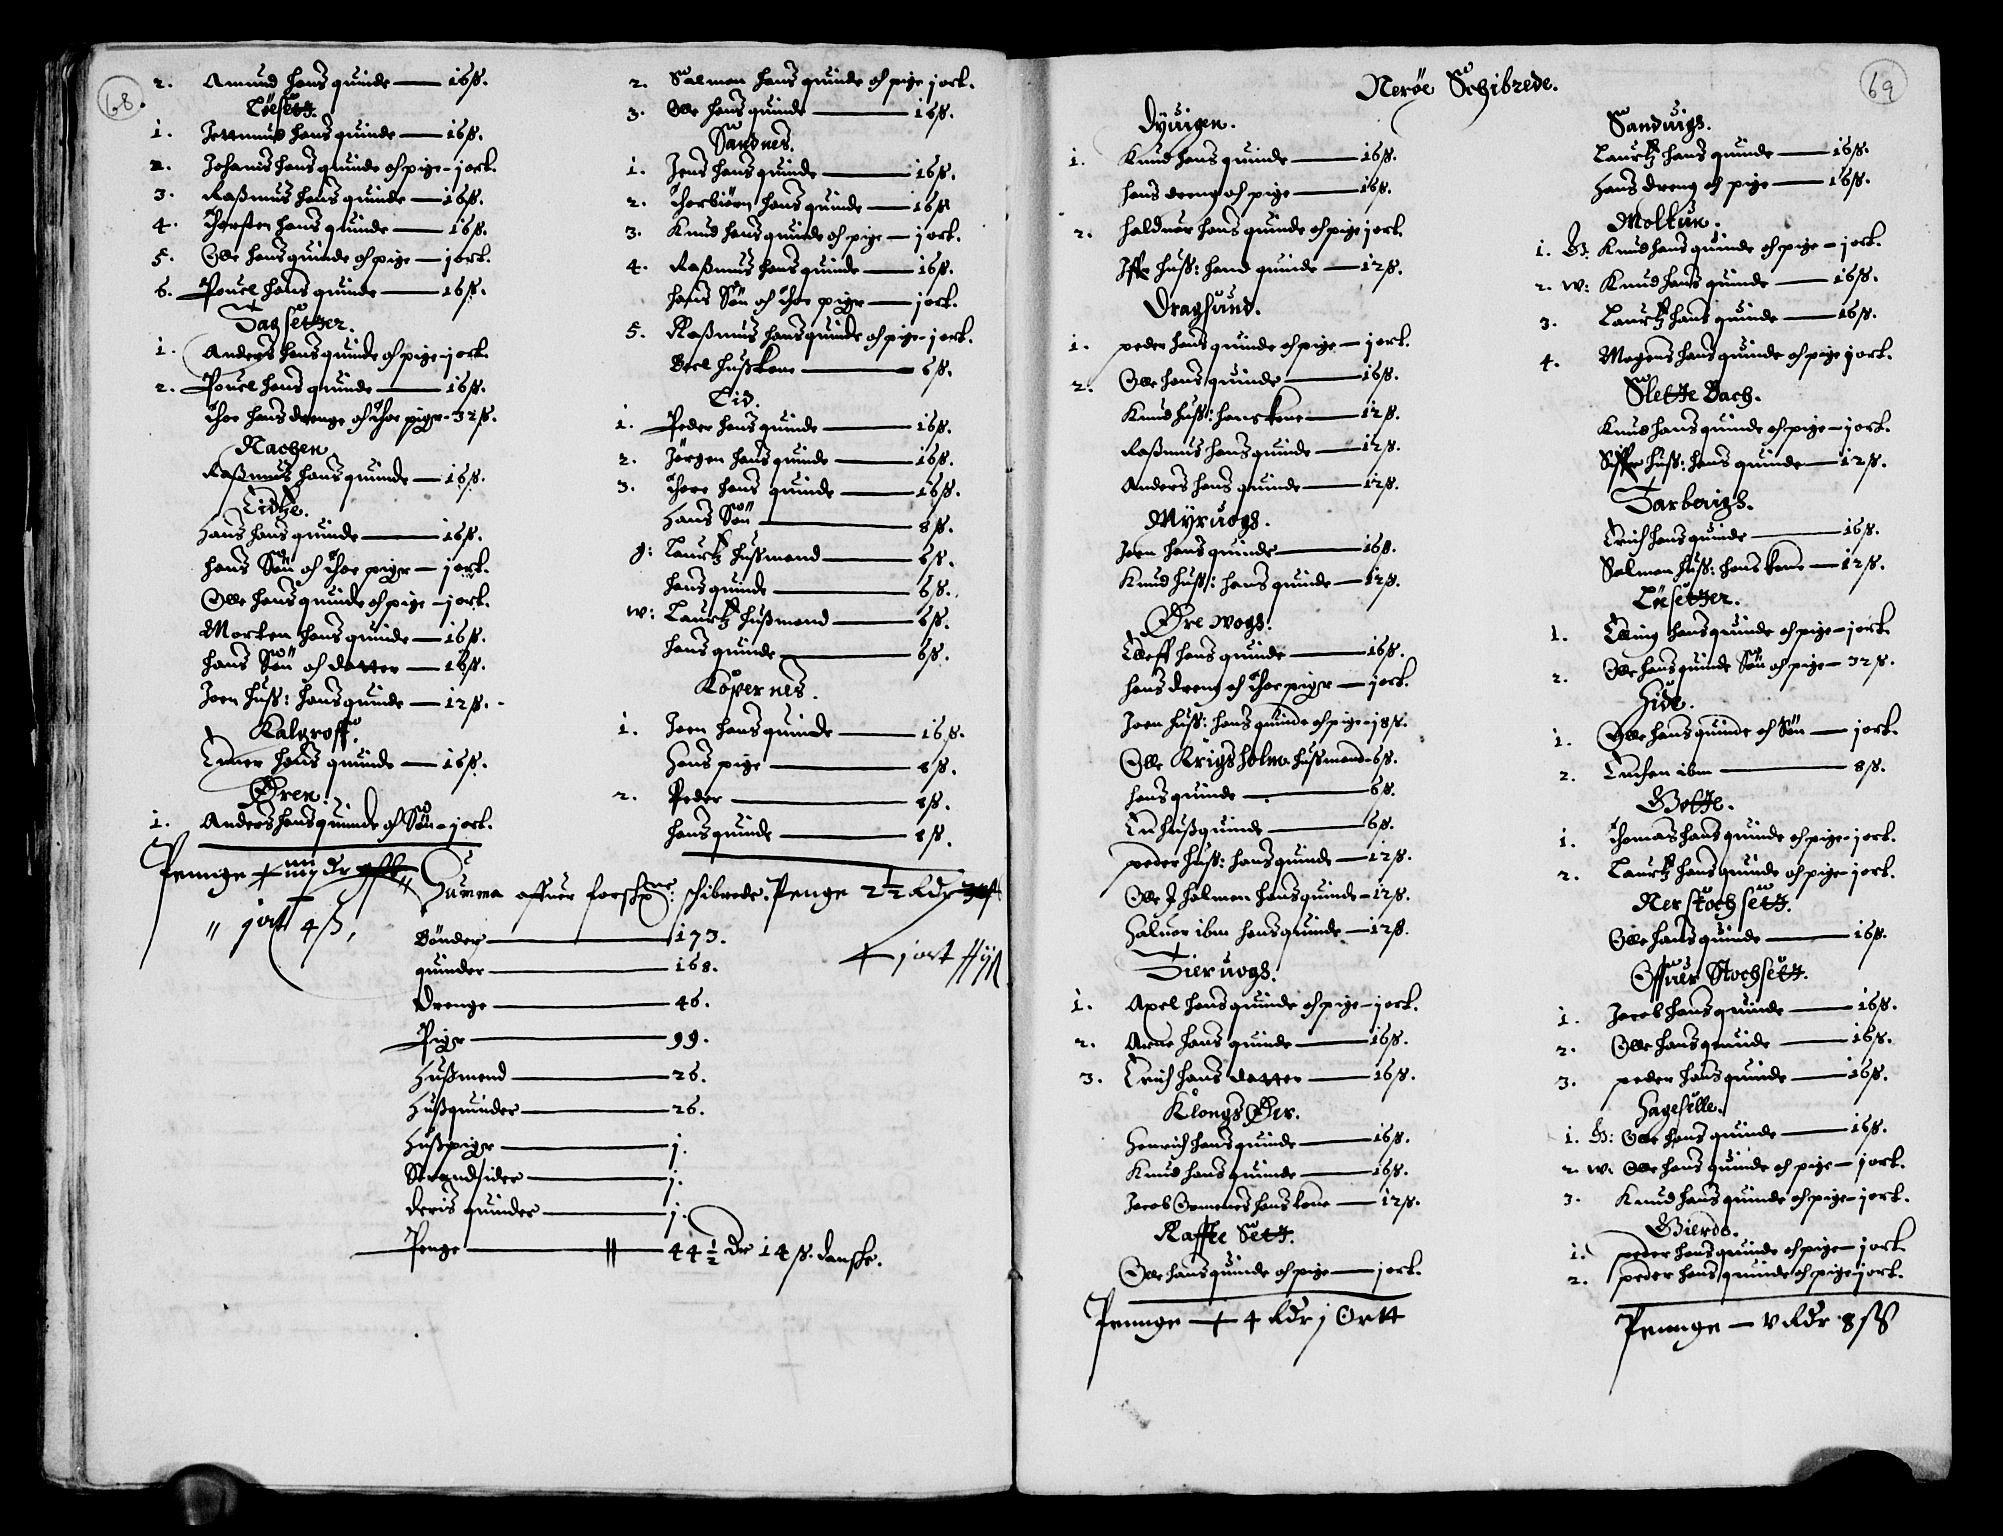 68.
2. Amund hans quinde — 16 ß.
Löesetz.
1. Jettmund hans quinde — 16 ß.
2. Johanis hans quinde och pige – j ort.
3. Raßmus hans quinde — 16 ß.
4. Thorsten hans quinde — 16 ß.
5. Olle hans quinde och pige — j ort.
6. Pouel hans quinde — 16 ß.
Tagsetter.
1. Anders hans quinde och pige – j ort.
2. Pouel hans quinde — 16 ß.
thoe hans drenge och thoe piger – 32 ß.
Nachen
Raßmus hans quinde — 16 ß.
Eidtze.
Hans hans quinde — 16 ß.
hans Sön och thoe piger — j ort.
Olle hans quinde och pige – j ort.
Morten hans quinde — 16 ß.
hans Sön och datter — 16 ß.
Joen huß: hans quinde — 12 ß.
Kalgroff.
Einer hans quinde — 16 ß.
Øren.
1. Anders hans quinde och Sön – j ort.
Penge
j ort 4 ß,
2. Salmon hans quinde och pige j ort.
3. Olle hans quinde — 16 ß.
Sandnes.
1. Jens hans quinde — 16 ß.
2. Thorbiörn hans quinde — 16 ß
3. Knud hans quinde och pige — j ort.
4. Raßmus hans quinde — 16 ß.
hans Sön och thoe piger — j ort.
5. Raßmus hans quinde och pige – j ort.
Berl hußkone — 6 ß.
Eid.
1. Peder hans quinde — 16 ß.
2. Jörgen hans quinde — 16 ß.
3. thore hans quinde — 16 ß.
Hans Sön — 8 ß.
g: Lauritz hußmand — 6 ß.
hans quinde — 6 ß.
w: Lauritz hußmand — 6 ß.
hans quinde — 6 ß.
Köpernes.
1. Joen hans quinde — 16 ß.
Hans pige — 8 ß.
2. Peder — 8 ß.
hans quinde — 8 ß.
Summa offuer forschne: schibrede. Penge 2½ Rdr
j ort
Bönder — 173.
quinder — 168.
Drenge — 46.
Piger — 99.
Hußmend — 26.
Hußquinder — 26.
Hußpiger — j.
Strandsider — j.
deris quinder — j.
Penge — 44½ dr 14 ß. danske.
69
Nerøe Schibrede.
Dyuigen.
1. Knud hans quinde — 16 ß.
hans dreng och pige — 16 ß.
2. Halduor hans quinde och pige j ort.
Iffer huß: hans quinde — 12 ß.
Dragsund.
1. peder hans quinde och pige — j ort.
2. Olle hans quinde — 16 ß.
Knud huß: hans kone — 12 ß.
Raßmus hans quinde — 12 ß.
Anders hans quinde — 12 ß.
Myruogs.
Joen hans quinde — 16 ß.
Knud huß: hans quinde — 12 ß.
Øre wogs.
Elleff hans quinde — 16 ß.
hans dreng och thoe piger — j ort.
Joen huß: hans quinde och pige – j 8 ß.
Olle Krigsholm hußmand – 6 ß.
hans quinde — 6 ß.
En hußquinde — 6 ß.
peder huß: hans quinde — 12 ß.
Olle I holmen hans quinde – 12 ß.
Haluor ibm hans quinde — 12 ß.
Tieruogs.
1. Axel hans quinde och pige – j ort.
2. Arne hans quinde — 16 ß.
3. Erich hans datter — 16 ß.
Klongs Øer.
Henrich hans quinde — 16 ß.
Knud hans quinde — 16 ß.
Jacob hans kone — 12 ß.
Raffte Setz.
Olle hans quinde och pige — j ort.
Penge — 4 Rdr j Ortt
Sanduigs.
Lauritz hans quinde — 16 ß.
Hans dreng och pige — 16 ß.
Moltun.
1. G. Knud hans quinde och pige – j ort.
2. w: Knud hans quinde — 16 ß.
3. Lauritz hans quinde — 16 ß.
4. Mogens hans quinde och pige j ort.
Slette Bach.
Knud hans quinde och pige – j ort.
Siffer huß: hans quinde — 12 ß.
Tarberigs.
Erich hans quinde — 16 ß.
Salmon huß: hans kone — 12 ß.
Löesetter.
1. Elling hans quinde och pige – j ort.
2. Olle hans quinde Sön och pige – 32 ß.
Hide.
1. Olle hans quinde och Sön — j ort.
2. Enchen ibm — 8 ß.
Botte.
1. Thomas hans quinde och pige – j ort.
2. Lauritz hans quinde och pige – j ort.
Nerstochsetz.
Olle hans quinde — 16 ß.
Offuer Stochsetz.
1. Jacob hans quinde — 16 ß.
2. Olle hans quinde — 16 ß.
3. peder hans quinde — 16 ß.
Hageselle.
1. G: Olle hans quinde — 16 ß.
2. w. Olle hans quinde och pige – j ort.
3. Knud hans quinde och pige – j ort.
Gierde.
1. peder hans quinde och pige – j ort.
2. peder hans quinde och pige j ort.
Penge — v Rdr 8 ß